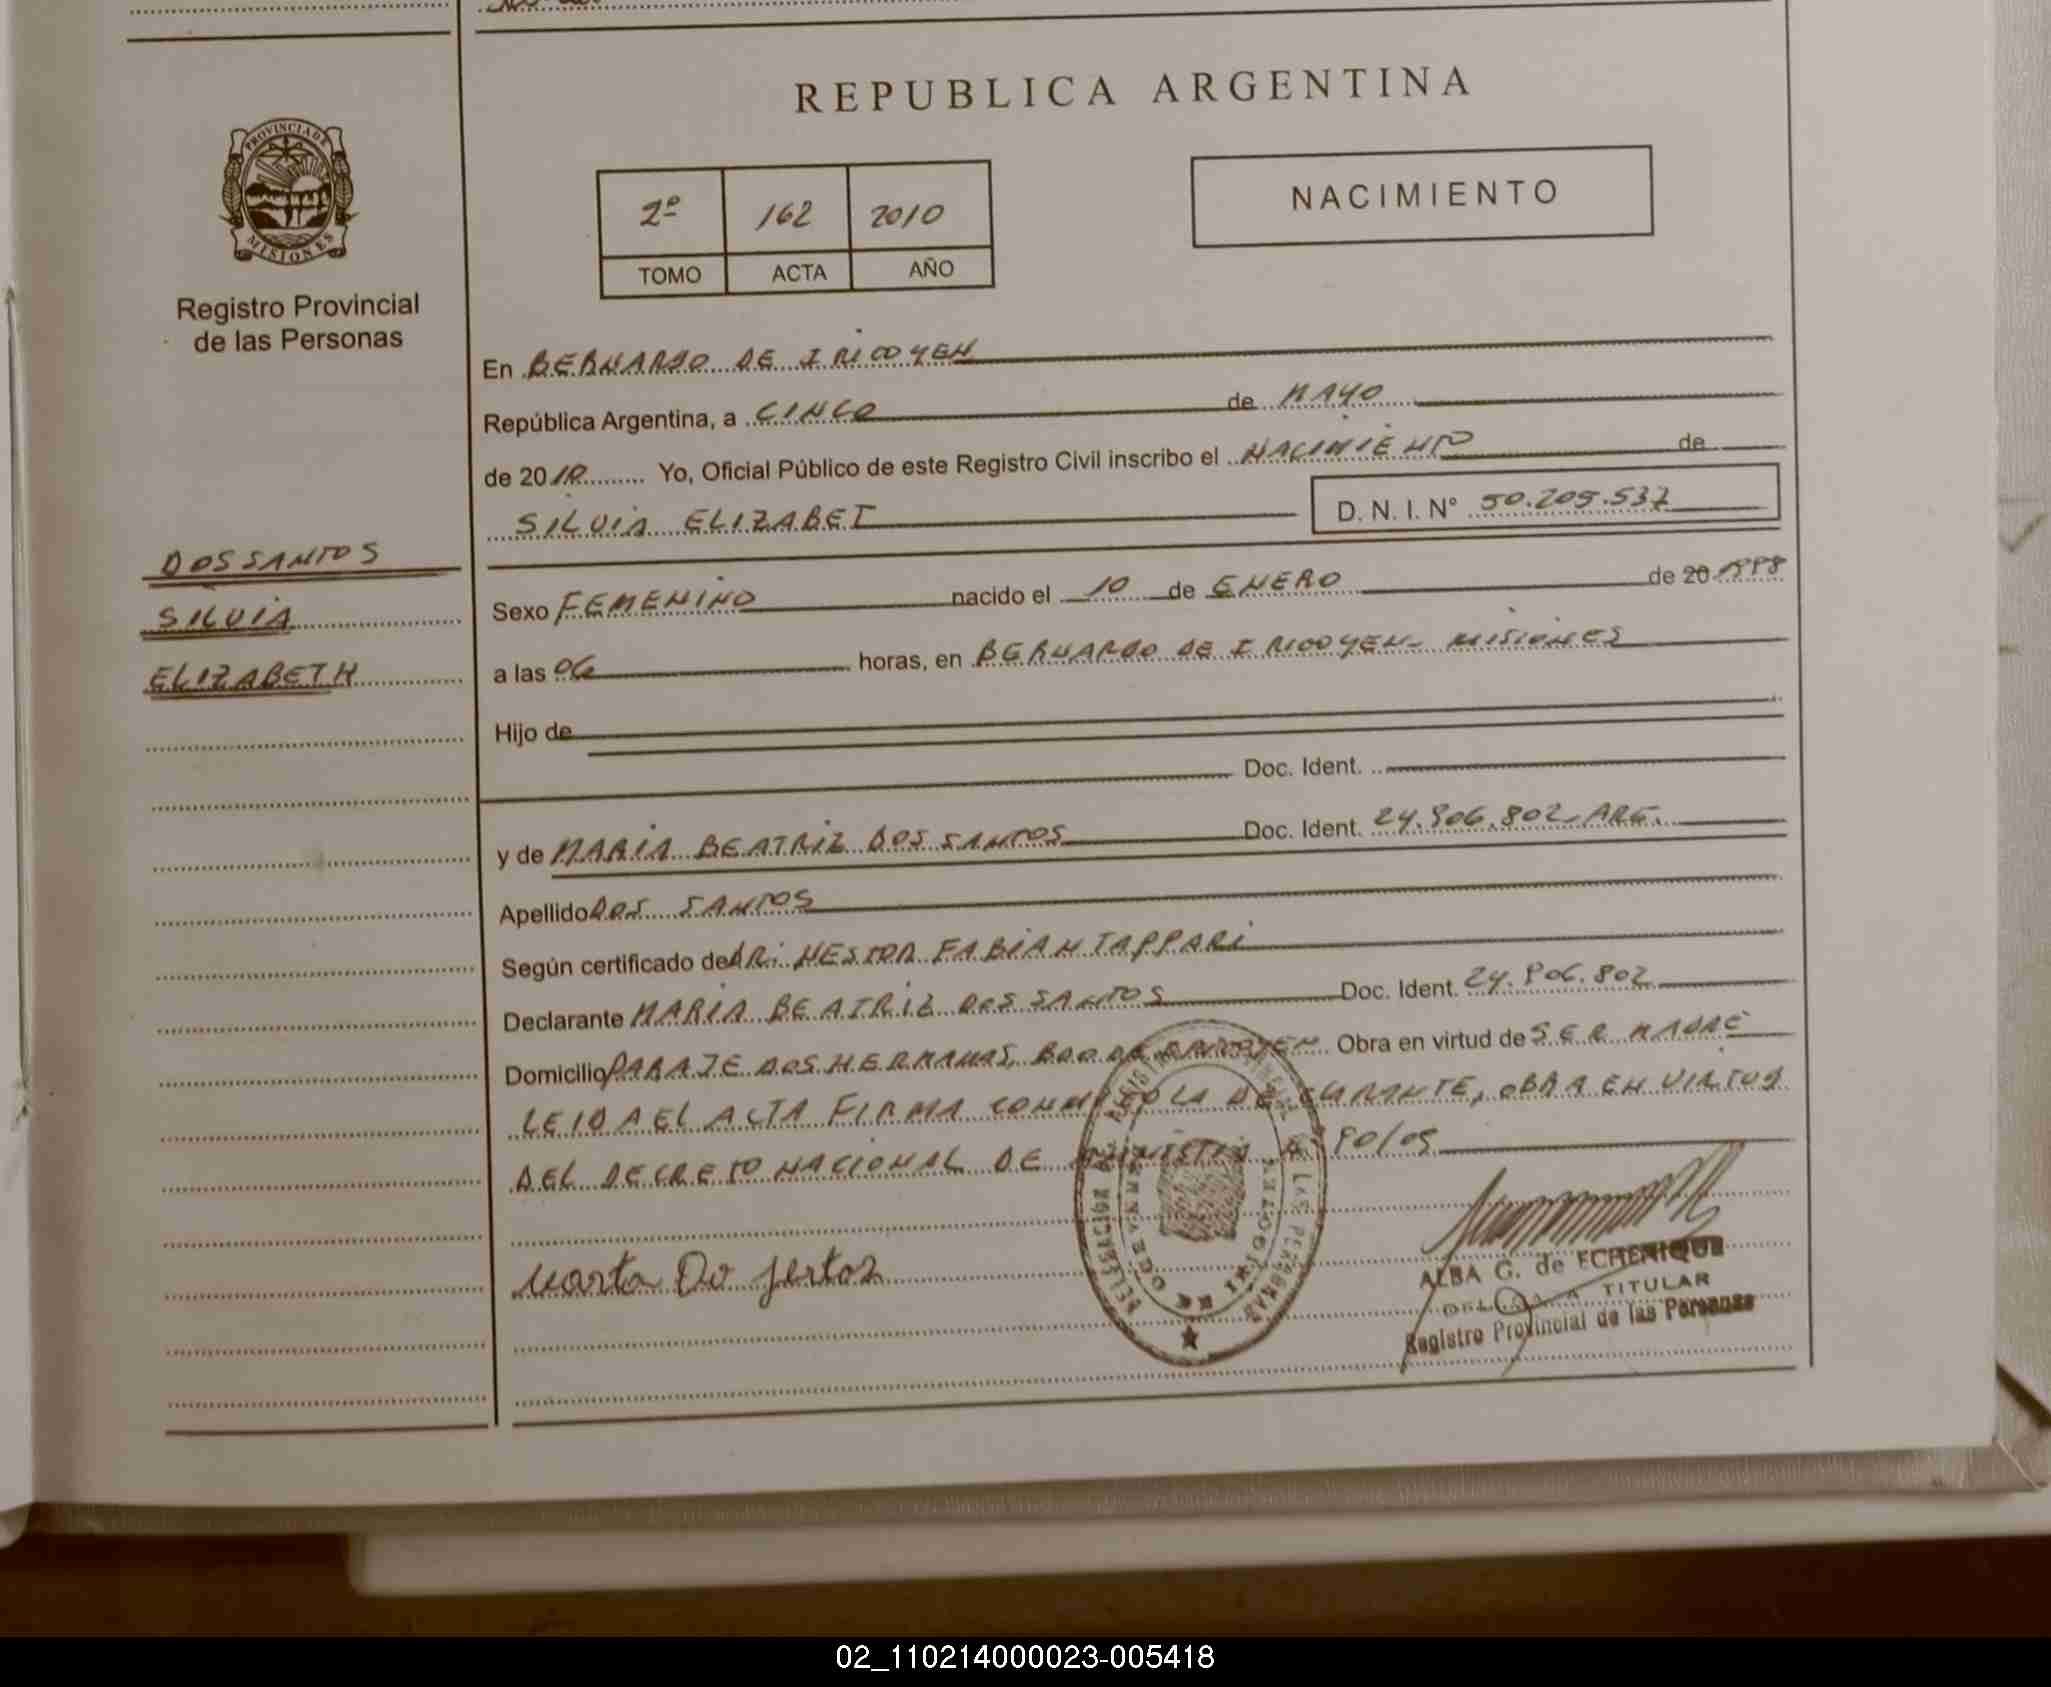 REPUBLICA ARGENTINA
PROVINCIA DE
MISIONES
Registro Provincial
de las Personas
2º 162 2010
TOMO ACTA AÑO
NACIMIENTO
En BERNARDO DE IRIGOYEN
República Argentina, a CINCO de MAYO
de 2010 Yo, Oficial Público de este Registro Civil inscribo el NACIMIENTO de
SILVIA ELIZABET D. N. I. Nº 50.205.537
DOS SANTOS
SILVIA
ELIZABETH
Sexo FEMENINO nacido el 10 de ENERO de 20 1998
a las 06 horas, en BERNARDO DE IRIGOYEN- MISIONES
Hijo de
Doc. Ident.
y de MARIA BEATRIZ DOS SANTOS Doc. Ident. 24.906.802-ARG.
Apellido DOS SANTOS
Según certificado de DR: NESTOR FABIAN TAPPARI
Declarante MARIA BEATRIZ DOS SANTOS Doc. Ident. 24.906.802
Domicilio PARAJE DOS HERMANAS, BDO DE IRIGOYEN Obra en virtud de SER MADRE
LEIDA EL ACTA FIRMA CONMIGO LA DECLARANTE, OBRA EN VIRTUD
DEL DECRETO NACIONAL DE 90/09
DELEGACION REGISTRO PROVINCIAL DE LAS PERSONAS
BDO. DE IRIGOYEN
ALBA G. de ECHENIQUE
DELEGADA TITULAR
Registro Provincial de las Personas
02_110214000023-005418